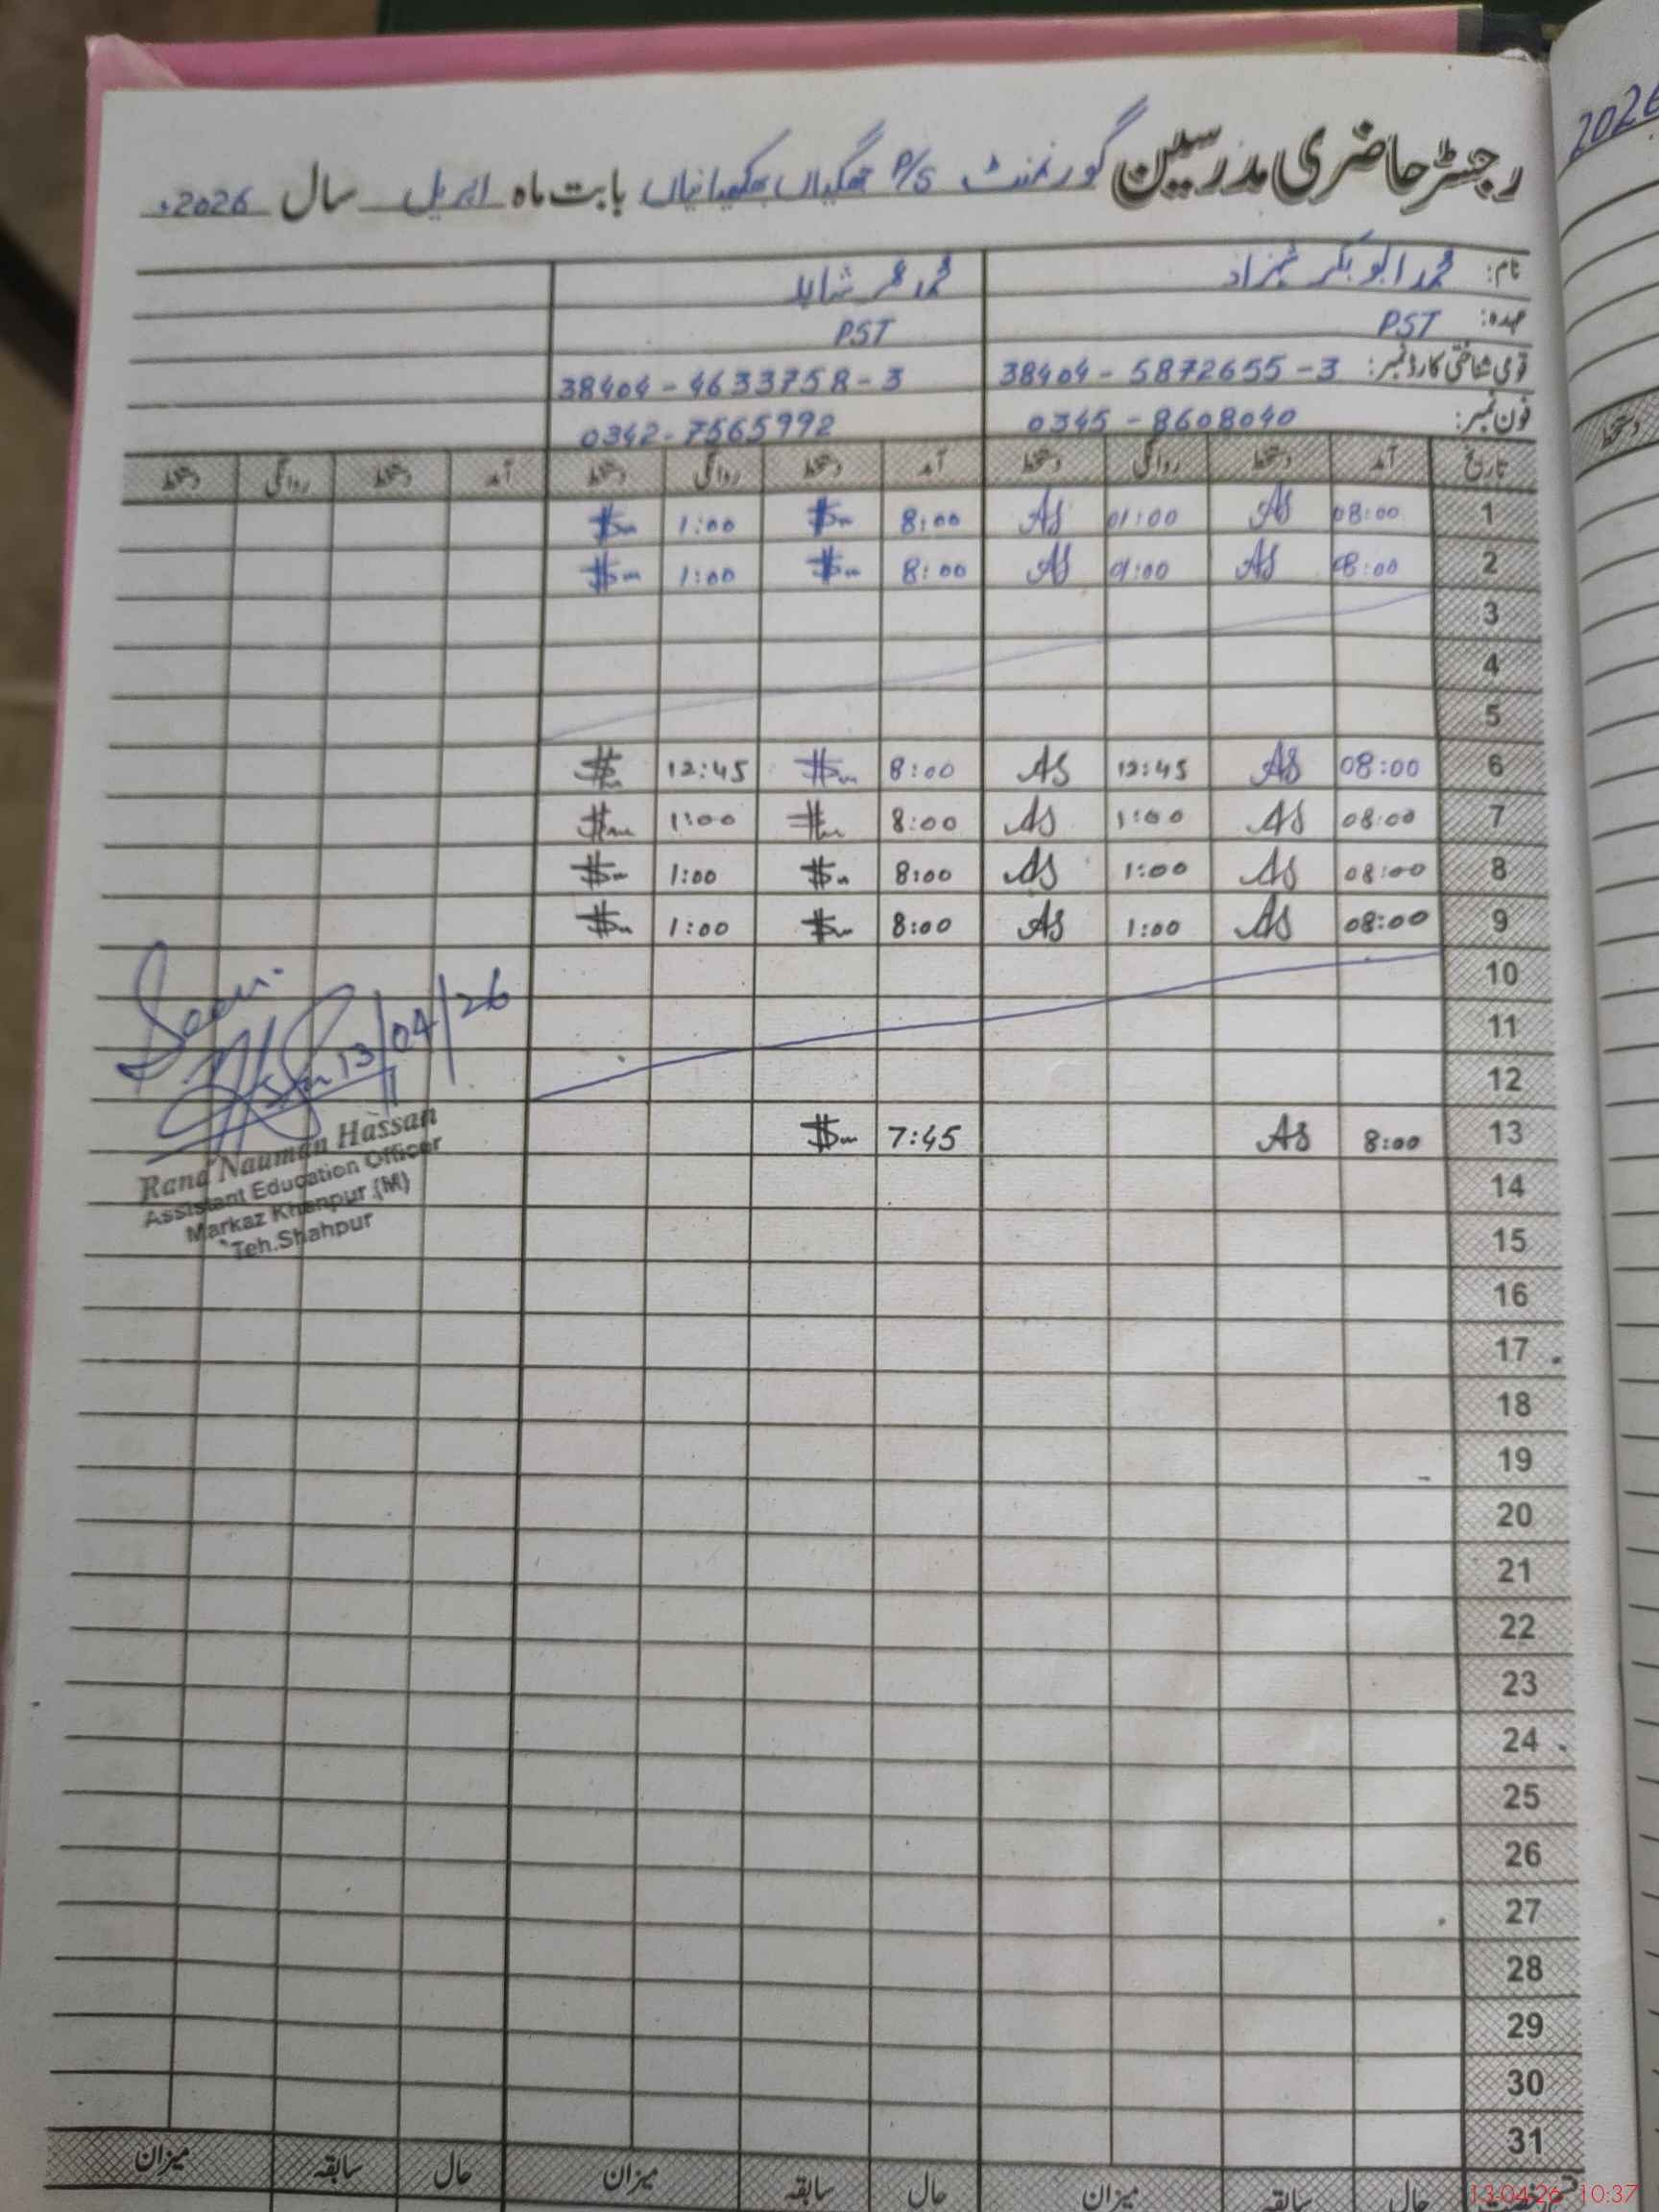 رجسٹر حاضری مدرسین گورنمنٹ P/S بابت ماہ اپریل سال 2026
نام: محمد ابوبکر شہزاد محمد عمر شاہد
عہدہ: PST PST
قومی شناختی کارڈ نمبر: 38404-5872655-3 38404-4633758-3
فون نمبر: 0345-8608040 0342-7565992
تاریخ آمد دستخط روانگی دستخط آمد دستخط روانگی دستخط آمد دستخط روانگی دستخط
1 08:00 AS 01:00 AS 8:00 1:00
2 08:00 AS 01:00 AS 8:00 1:00
3
4
5
6 08:00 AS 12:45 AS 8:00 12:45
7 08:00 AS 1:00 AS 8:00 1:00
8 08:00 AS 1:00 AS 8:00 1:00
9 08:00 AS 1:00 AS 8:00 1:00
10
11
12
13 8:00 AS 7:45
14
15
16
17
18
19
20
21
22
23
24
25
26
27
28
29
30
31
Seen
13/04/26
Rana Nauman Hassan
Assistant Education Officer
Markaz Khanpur (M)
Teh.Shahpur
حال سابقہ میزان حال سابقہ میزان حال سابقہ میزان
2026
دستخط
13-04-26 10:37